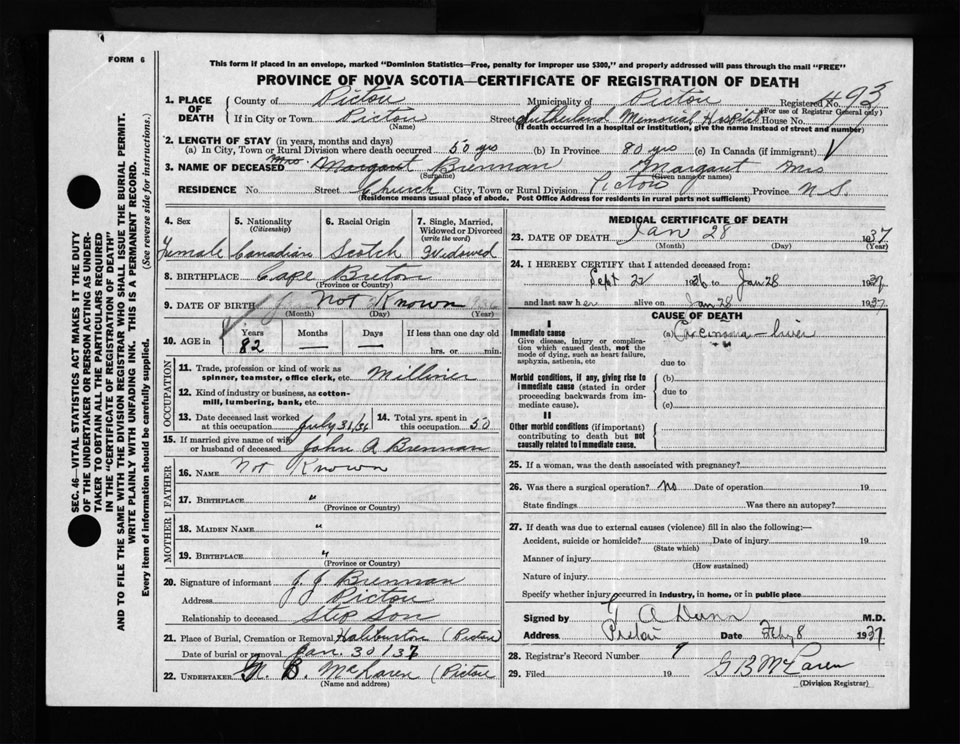 FORM 6
This form if placed in an envelope, marked "Dominion Statistics—Free, penalty for improper use $300," and properly addressed will pass through the mail "FREE"
PROVINCE OF NOVA SCOTIA—CERTIFICATE OF REGISTRATION OF DEATH
SEC. 46—VITAL STATISTICS ACT MAKES IT THE DUTY
OF THE UNDERTAKER OR PERSON ACTING AS UNDER-
TAKER TO OBTAIN ALL THE PARTICULARS REQUIRED
IN THE "CERTIFICATE OF REGISTRATION OF DEATH"
AND TO FILE THE SAME WITH THE DIVISION REGISTRAR WHO SHALL ISSUE THE BURIAL PERMIT.
WRITE PLAINLY WITH UNFADING INK. THIS IS A PERMANENT RECORD.
Every item of information should be carefully supplied. (See reverse side for instructions.)
1. PLACE OF DEATH County of Pictou Municipality of Pictou Registered No. 493
(For use of Registrar General only)
If in City or Town Pictou Street Sutherland Memorial Hospital House No.
(Name) (If death occurred in a hospital or institution, give the name instead of street and number)
2. LENGTH OF STAY (in years, months and days)
(a) In City, Town or Rural Division where death occurred 50 yrs (b) In Province 80 yrs (c) In Canada (if immigrant)
3. NAME OF DECEASED Mrs. Margaret Brennan Margaret Mrs
(Surname) (Given name or names)
RESIDENCE No. Street Church City, Town or Rural Division Pictou Province N.S.
(Residence means usual place of abode. Post Office Address for residents in rural parts not sufficient)
4. Sex 5. Nationality (Citizenship) 6. Racial Origin 7. Single, Married, Widowed or Divorced (write the word)
Female Canadian Scotch Widowed
8. BIRTHPLACE Cape Breton
(Province or Country)
9. DATE OF BIRTH Not Known
(Month) (Day) (Year)
10. AGE in Years Months Days If less than one day old
82 hrs. or min.
OCCUPATION
11. Trade, profession or kind of work as spinner, teamster, office clerk, etc. Milliner
12. Kind of industry or business, as cotton-mill, lumbering, bank, etc.
13. Date deceased last worked at this occupation July 31/36 14. Total yrs. spent in this occupation 50
15. If married give name of wife or husband of deceased John A Brennan
FATHER
16. NAME Not Known
17. BIRTHPLACE "
(Province or Country)
MOTHER
18. MAIDEN NAME "
19. BIRTHPLACE "
(Province or Country)
20. Signature of informant J. J. Brennan
Address Pictou
Relationship to deceased Step Son
21. Place of Burial, Cremation or Removal Haliburton (Pictou
Date of burial or removal Jan. 30/37
22. UNDERTAKER B. McLaren (Pictou
(Name and address)
MEDICAL CERTIFICATE OF DEATH
23. DATE OF DEATH Jan 28 1937
(Month) (Day) (Year)
24. I HEREBY CERTIFY that I attended deceased from:
Sept 22 1936 to Jan 28 1937
and last saw her alive on Jan 28 1937
CAUSE OF DEATH
I
Immediate cause (a) Carcinoma - liver
Give disease, injury or complica-
tion which caused death, not the
mode of dying, such as heart failure,
asphyxia, asthenia, etc due to
Morbid conditions, if any, giving rise to (b)
immediate cause (stated in order due to
proceeding backwards from im-
mediate cause). (c)
II
Other morbid conditions (if important)
contributing to death but not
causally related to immediate cause.
25. If a woman, was the death associated with pregnancy?
26. Was there a surgical operation? No Date of operation 19
State findings Was there an autopsy?
27. If death was due to external causes (violence) fill in also the following:—
Accident, suicide or homicide? Date of injury 19
(State which)
Manner of injury
(How sustained)
Nature of injury
Specify whether injury occurred in industry, in home, or in public place
Signed by A Dunn M.D.
Address Pictou Date Feby 8 1937
28. Registrar's Record Number 9
29. Filed 19 G B McLaren
(Division Registrar)